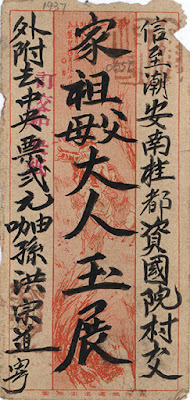 1937
信至潮安南桂都資國院村交
家祖父母大人玉展
外附去中央票弍元 由叻孫洪宗道寄